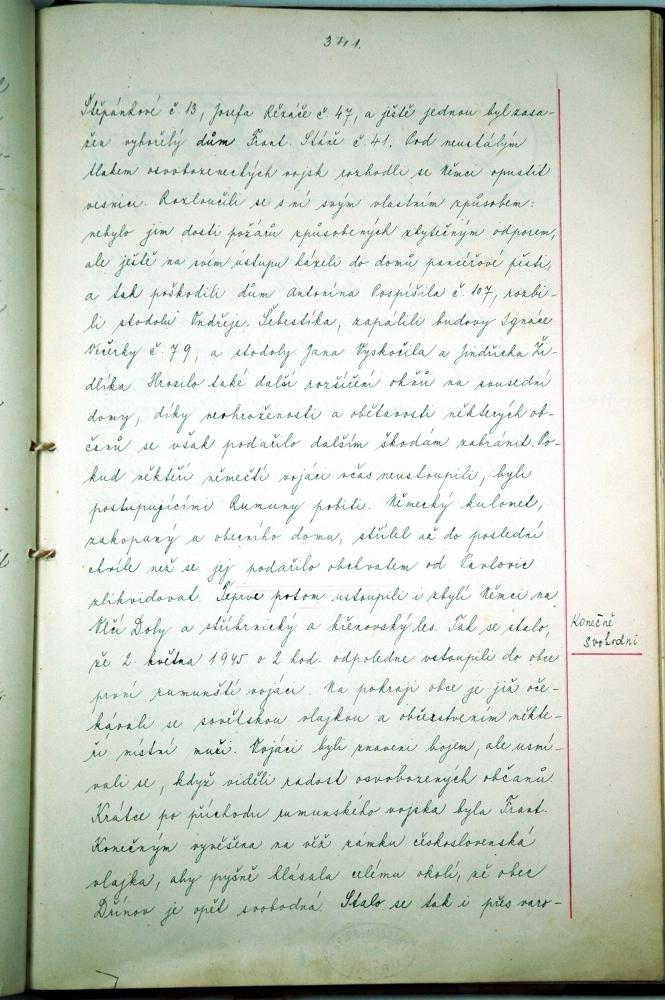 341.
Štěpánkové č. 13, Josefa Řezáče č. 47, a ještě jednou byl zasa-
žen vyhořelý dům Frant. Stáře č. 41. Pod neustálým
tlakem osvobozeneckých vojsk rozhodli se Němci opustit
vesnici. Rozloučili se s ní svým vlastním způsobem:
nebylo jim dosti požárů způsobených zbytečným odporem,
ale ještě na svém ústupu házeli do domů pancéřové pěsti,
a tak poškodili dům Antonína Pospíšila č. 107, rozbi-
li stodolu Ondřeje Šebestíka, zapálili budovy Ignáce
Večerky č. 79, a stodoly Jana Vyskočila a Jindřicha Ži-
dlíka. Hrozilo také další rozšíření ohňů na sousední
domy, díky neohroženosti a obětavosti některých ob-
čanů se však podařilo dalším škodám zabránit. Po-
kud někteří němečtí vojáci včas neustoupili, byli
postupujícími Rumuny pobiti. Německý kulomet,
zakopaný u obecního domu, střílel až do poslední
chvíle než se jej podařilo obchvatem od Pavlovic
zlikvidovat. Teprve potom ustoupili i zbylí Němci na
Vlčí Doly a stříbrnický a křenovský les. Tak se stalo,
že 2. května 1945 o 2 hod. odpoledne vstoupili do obce
první rumunští vojáci. Na pokraji obce je již oče-
kávali se sovětskou vlajkou a občerstvením někte-
ří místní muži. Vojáci byli znaveni bojem, ale usmí-
vali se, když viděli radost osvobozených občanů.
Krátce po příchodu rumunského vojska byla Frant.
Konečným vyvěšena na věž zámku československá
vlajka, aby pyšně hlásala celému okolí, že obec
Dřínov je opět svobodná. Stalo se tak i přes varo-
Konečně
svobodni